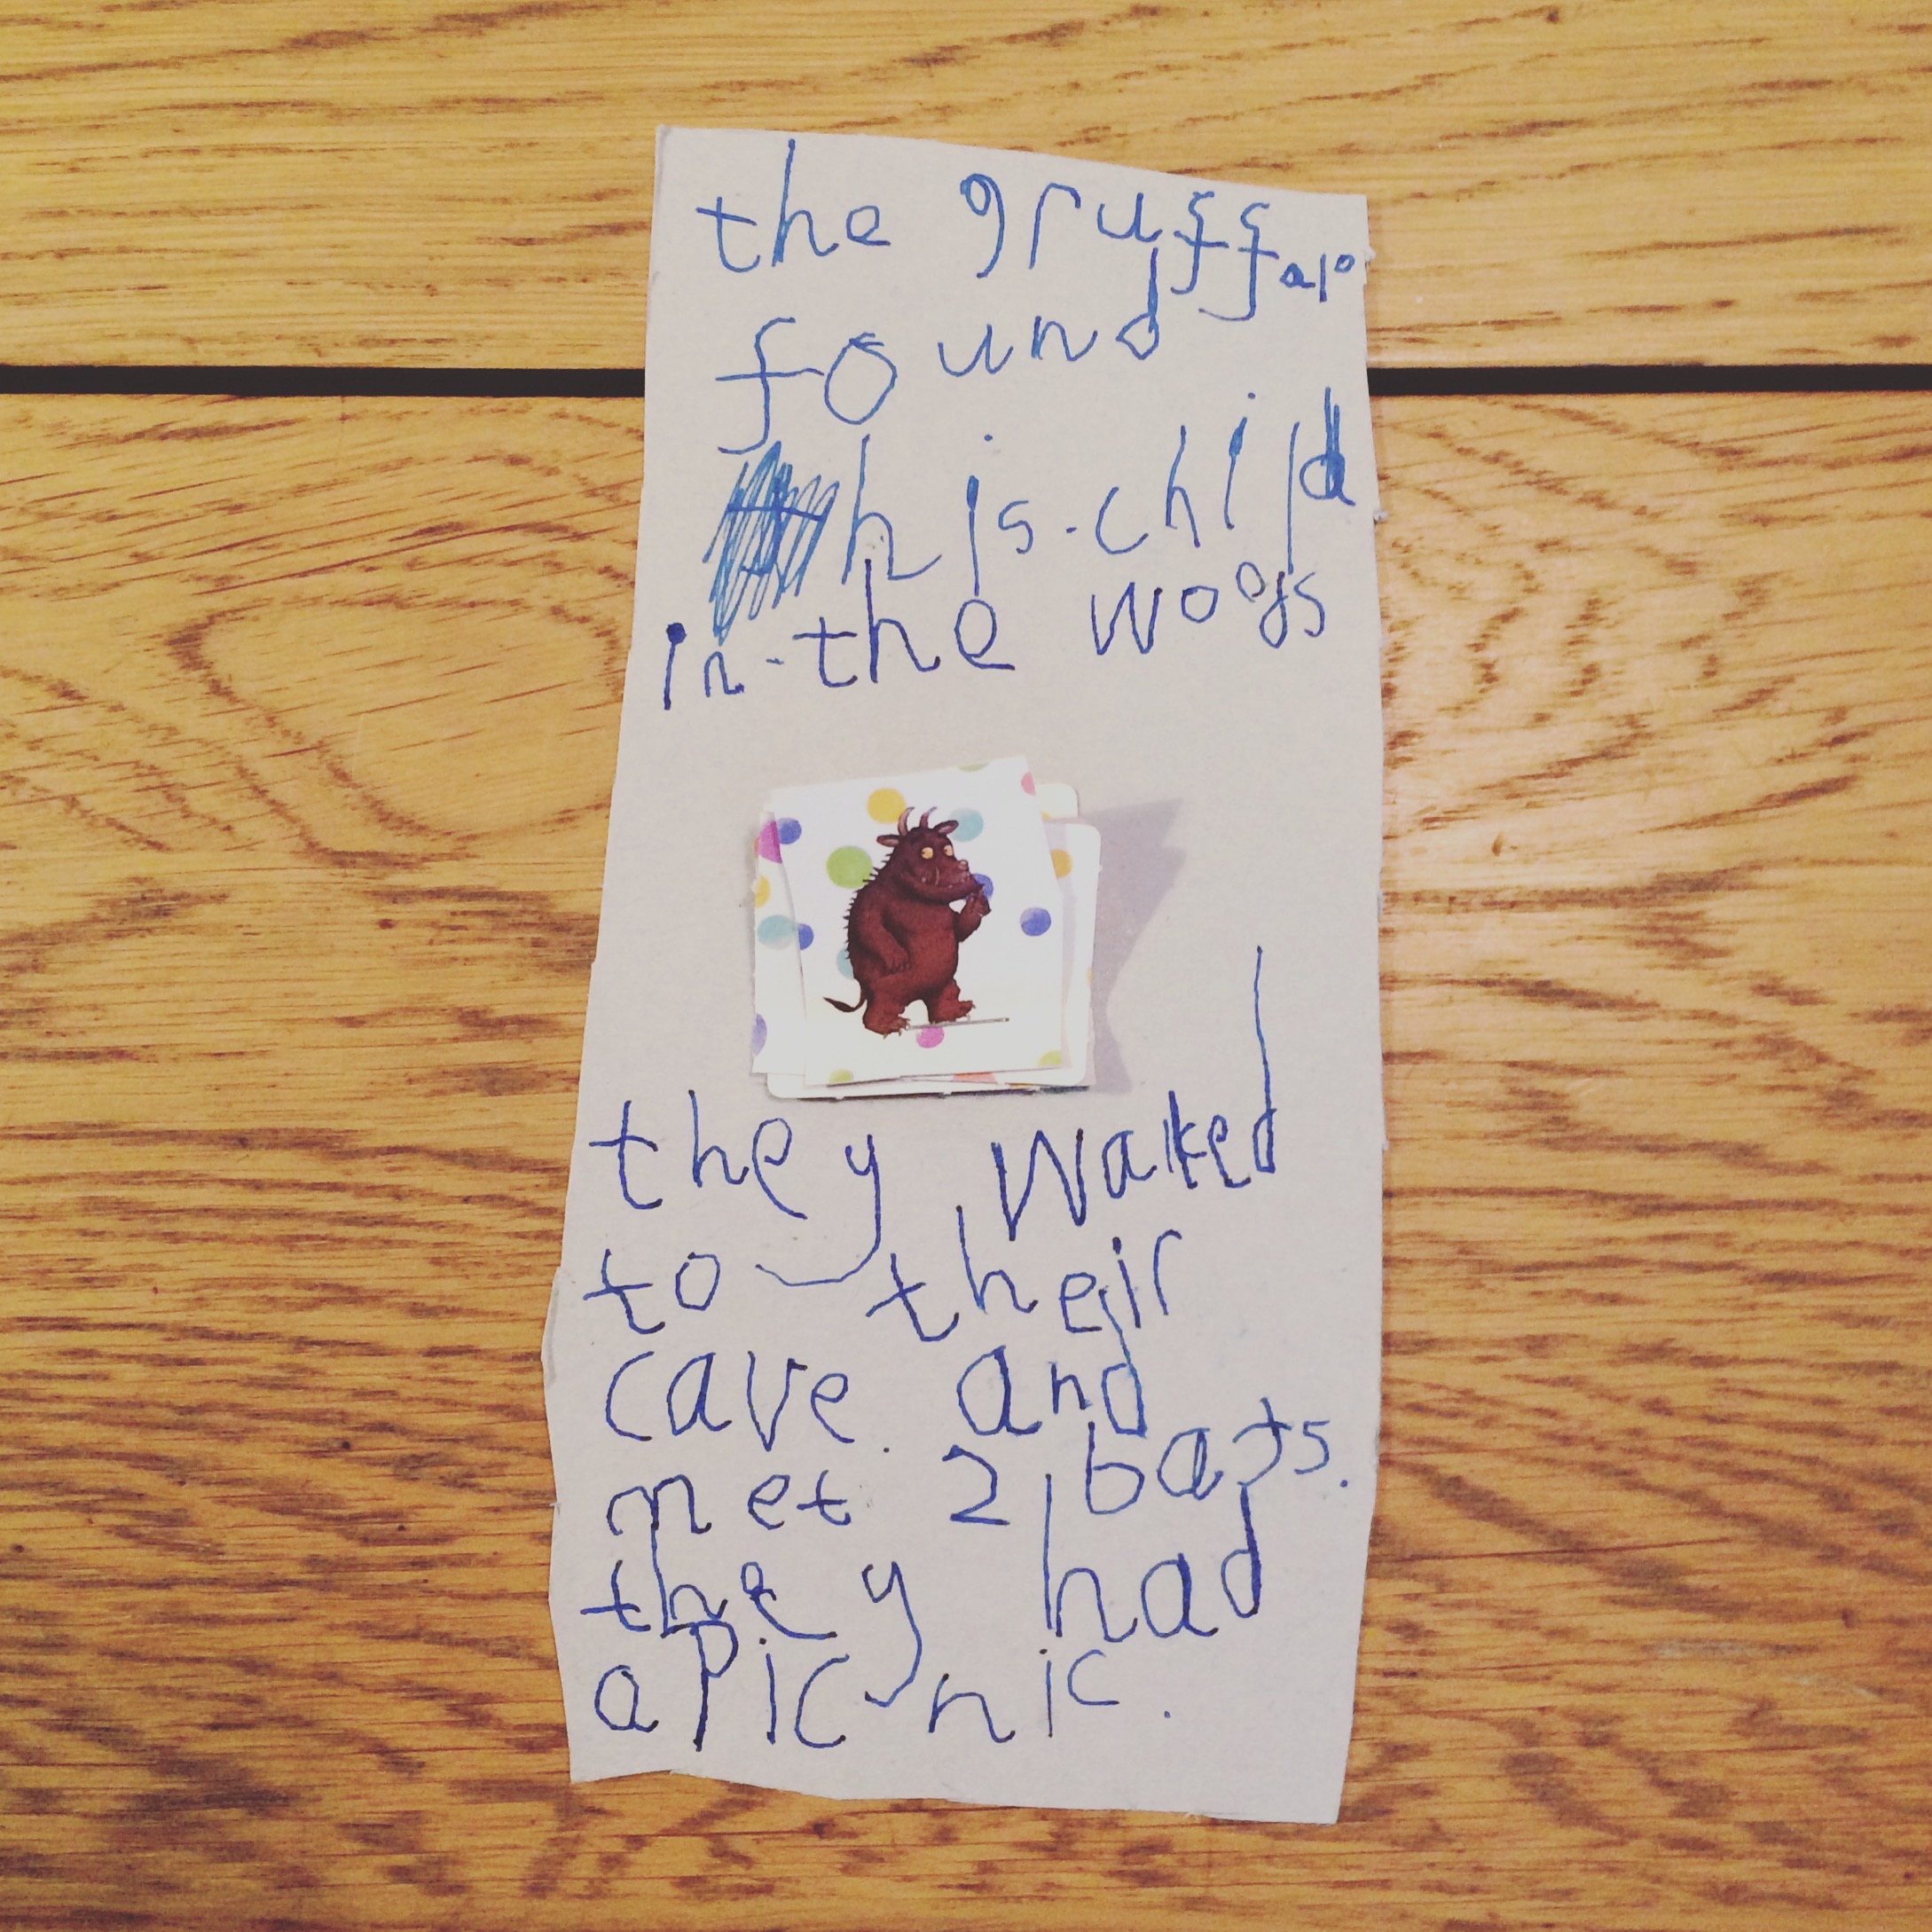 the gruffalo
found
his-child
in-the woods
they walked
to their
cave. and
met 2 bats.
they had
a picnic.